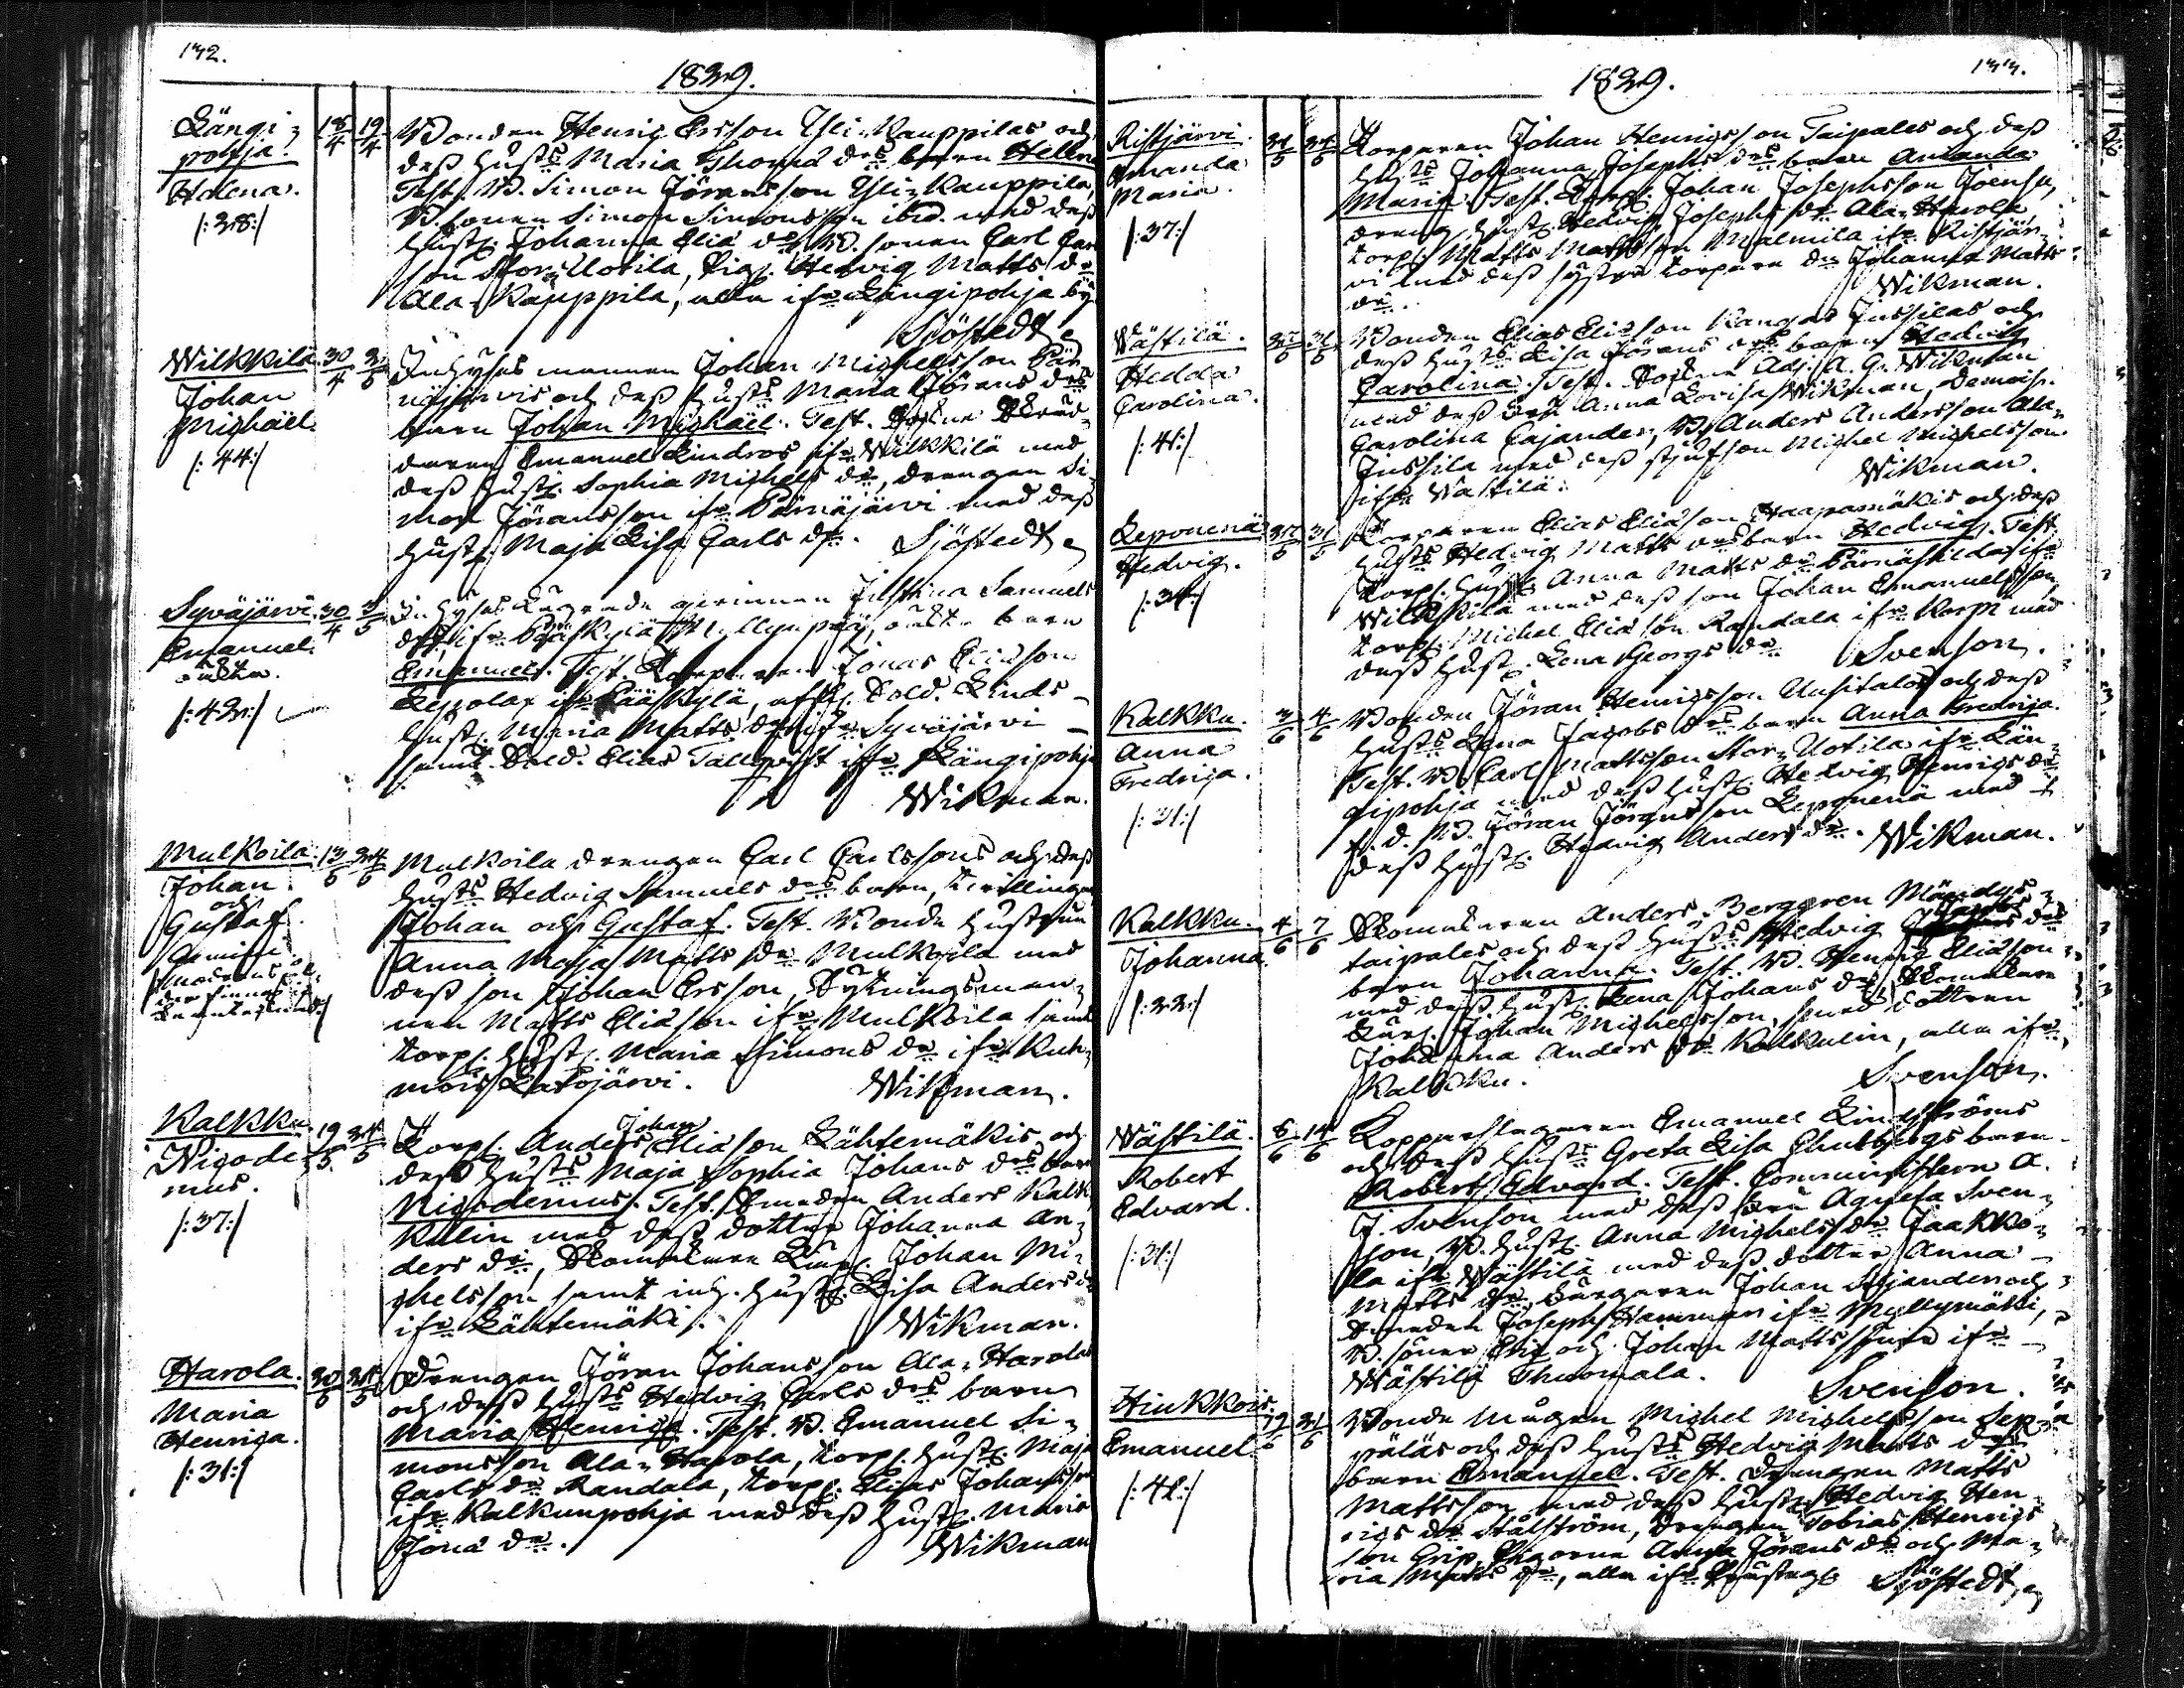 142.
1829.
Längi-
pohja.
Helena.
/:38:/
18/4 19/4
Bonden Henric Ersson Yli-Kauppilas och
dess hust:s Maria Thomæ d:rs barn Helena
Test. B. Simon Jöransson Yli-Kauppila,
B. sonen Simon Simonsson ibid. med dess
hust. Johanna Eliæ d:r, B. sonen Carl Carl
son Stor-Uotila, Pig. Hedvig Matts d:r
Ala-Kauppila, alla ifr. Längipohja by.
Sjöstedt
Wilkkilä
Johan
Michaël.
/:44:/
30/4 3/5
Inhyses mannen Johan Michelsson Pär-
näjärvis och dess hust:s Maria Jörans d:rs
barn Johan Michaël. Test. Sockne Skräd-
daren Emanuel Lindros ifr. Wilkkilä med
dess hust. Sophia Michels d:r, drengen Si-
mon Jöransson ifr. Pärnäjärvi med dess
hust. Maja Lisa Carls d:r. Sjöstedt
Syväjärvi.
Emanuel.
oäkta.
/:43:/
30/4 3/5
Inhyses qvinnan Justina Samuels
d:rs ifr. Pääskylä Myllynpää, oäkta barn
Emanuel. Test. Torparen Jonas Eliæson
Leppolax ifr. Pääskylä, afsk. Sold. Linds
hust. Maria Matts d:r ifr. Syväjärvi
samt Sold. Elias Tallqvist ifr. Längipohja
Wikman.
Mulkoila
Johan
och
Gustaf.
Gemini
13/5 24/5
Mulkoila drengen Carl Carlssons och dess
hust:s Hedvig Samuels d:rs barn, tvillingar
Johan och Gustaf. Test. Bonde hustrun
Anna Maja Matts d:r Mulkoila med
dess son Johan Ersson, Sytningsman-
nen Matts Eliæson ifr. Mulkoila samt
torp. hust. Maria Simons d:r ifr. Kuh-
mois Lastojärvi.
Wikman.
Kalkku.
Nicode-
mus.
/:37:/
19/5 24/5
Torp. Anders Johan Eliæson Lähtemäkis och
dess hust:s Maja Sophia Johans d:rs barn
Nicodemus. Test. Smeden Anders Kalk-
kulin med dess dotter Johanna An-
ders d:r, Skomakare Lärl. Johan Mi-
chelsson samt inh. hust. Lisa Anders d:r
ifr. Lähtemäki.
Wikman.
Harola.
Maria
Henrica.
/:31:/
20/5 24/5
Drengen Jöran Johansson Ala-Harolas
och dess hust:s Hedvig Carls d:rs barn
Maria Henrica. Test. B. Emanuel Si-
monsson Ala-Harola, torp. hust. Maja
Carls d:r Randala, torp. Elias Johansson
ifr. Kalkunpohja med dess hust. Maria
Jonæ d:r.
Wikman
1829.
Ristjärvi.
Amanda
Maria.
/:37:/
Torparen Johan Henricsson Taipales och dess
hust:s Johanna Josephs d:rs barn Amanda
Maria. Test. Johan Josephsson Joensu,
dreng hust. Hedvig Josephs d:r Ala-Harola
torp. Matts Mattsson Malmila ifr. Ristjär-
vi med dess syster torpare d:r Johanna Matts
d:r.
Wikman.
Wästilä.
Hedda
Carolina.
/:41:/
Bonden Elias Eliæson Kangas Jussilas och
dess hust:s Lisa Jörans d:rs barn Hedvig
Carolina. Test. Sockne Adj. A. G. Wikman
med dess fru Anna Lovisa Wikman, Demois.
Carolina Cajander, B. Anders Andersson Ala-
Jussila med dess stjufson Michel Michelsson
ifr. Wästilä.
Wikman.
Leponenä
Hedvig.
Torparen Elias Eliæson Haapamäkis och dess
hust:s Hedvig Matts d:rs barn Hedvig. Test.
Torp. hust. Anna Matts d:r ifr.
Wilkkilä med dess son Johan Emanuelsson,
torp. Michel Eliæ son Randala ifr. Korpi med
dess hust. Lena Georgs d:r
Svenson.
Kalkku.
Anna
Fredrica.
/:31:/
3/6 4/6
Bonden Jöran Henricsson Uusitalos och dess
hust:s Lena Jacobs d:rs barn Anna Fredrica.
Test. B. Carl Mattsson Stor-Uotila ifr. Län-
gipohja med dess hust. Hedvig Henrics d:r
f. d. B. Jöran Jöransson Leponenä med
dess hust. Hedvig Anders d:r. Wikman.
Kalkku.
Johanna.
/:33:/
4/6 7/6
Skomakaren Anders Berggren
taipales och dess hust:s Hedvig d:rs
barn Johanna. Test. B. Henric Eliæson
med dess hust. Lena Johans d:r, Skomakare
Lärl. Johan Michelsson, smed dottren
Johanna Anders d:r Kalkkulin, alla ifr.
Kalkku.
Svenson.
Wästilä.
Robert
Edvard.
/:31:/
6/6 14/6
Kopparslagaren Emanuel Lindströms
och dess hust:s Greta Lisa barn
Robert Edvard. Test. Comministern A.
J. Svenson med dess fru Agneta Sven-
son, B. hust. Anna Michels d:r Jaakko-
la ifr. Wästilä med dess dotter Anna
Matts d:r, Färgaren Johan och
Smeden Joseph Hammar ifr. Myllymäki,
B. söner Eric och Johan Matts söner ifr.
Wästilä Thuomala.
Svenson.
Hinkkois.
Emanuel.
Bonde mågen Michel Michelsson Sep-
päläs och dess hust:s Hedvig Matts d:rs
barn Emanuel. Test. drengen Matts
Mattsson med dess hust. Hedvig Hen-
rics d:r Stålström, drengen Tobias Henrics
son Grip, Pigorna Anna Jörans d:r och Ma-
ria Matts d:r, alla ifr.
Sjöstedt